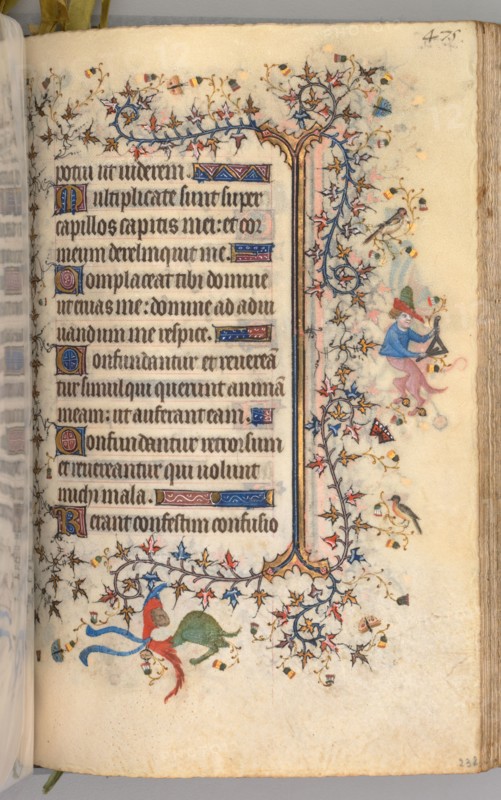 475.
potui ut viderem.
Multiplicate sunt super
capillos capitis mei: et cor
meum dereliquit me.
Complaceat tibi domine
ut eruas me: domine ad adiu
uandum me respice.
Confundantur et reuerea
tur simul qui querunt animā
meam: ut auferant eam.
Confundantur retrorsum
et reuereantur qui uolunt
michi mala.
Ferant confestim confusio
238